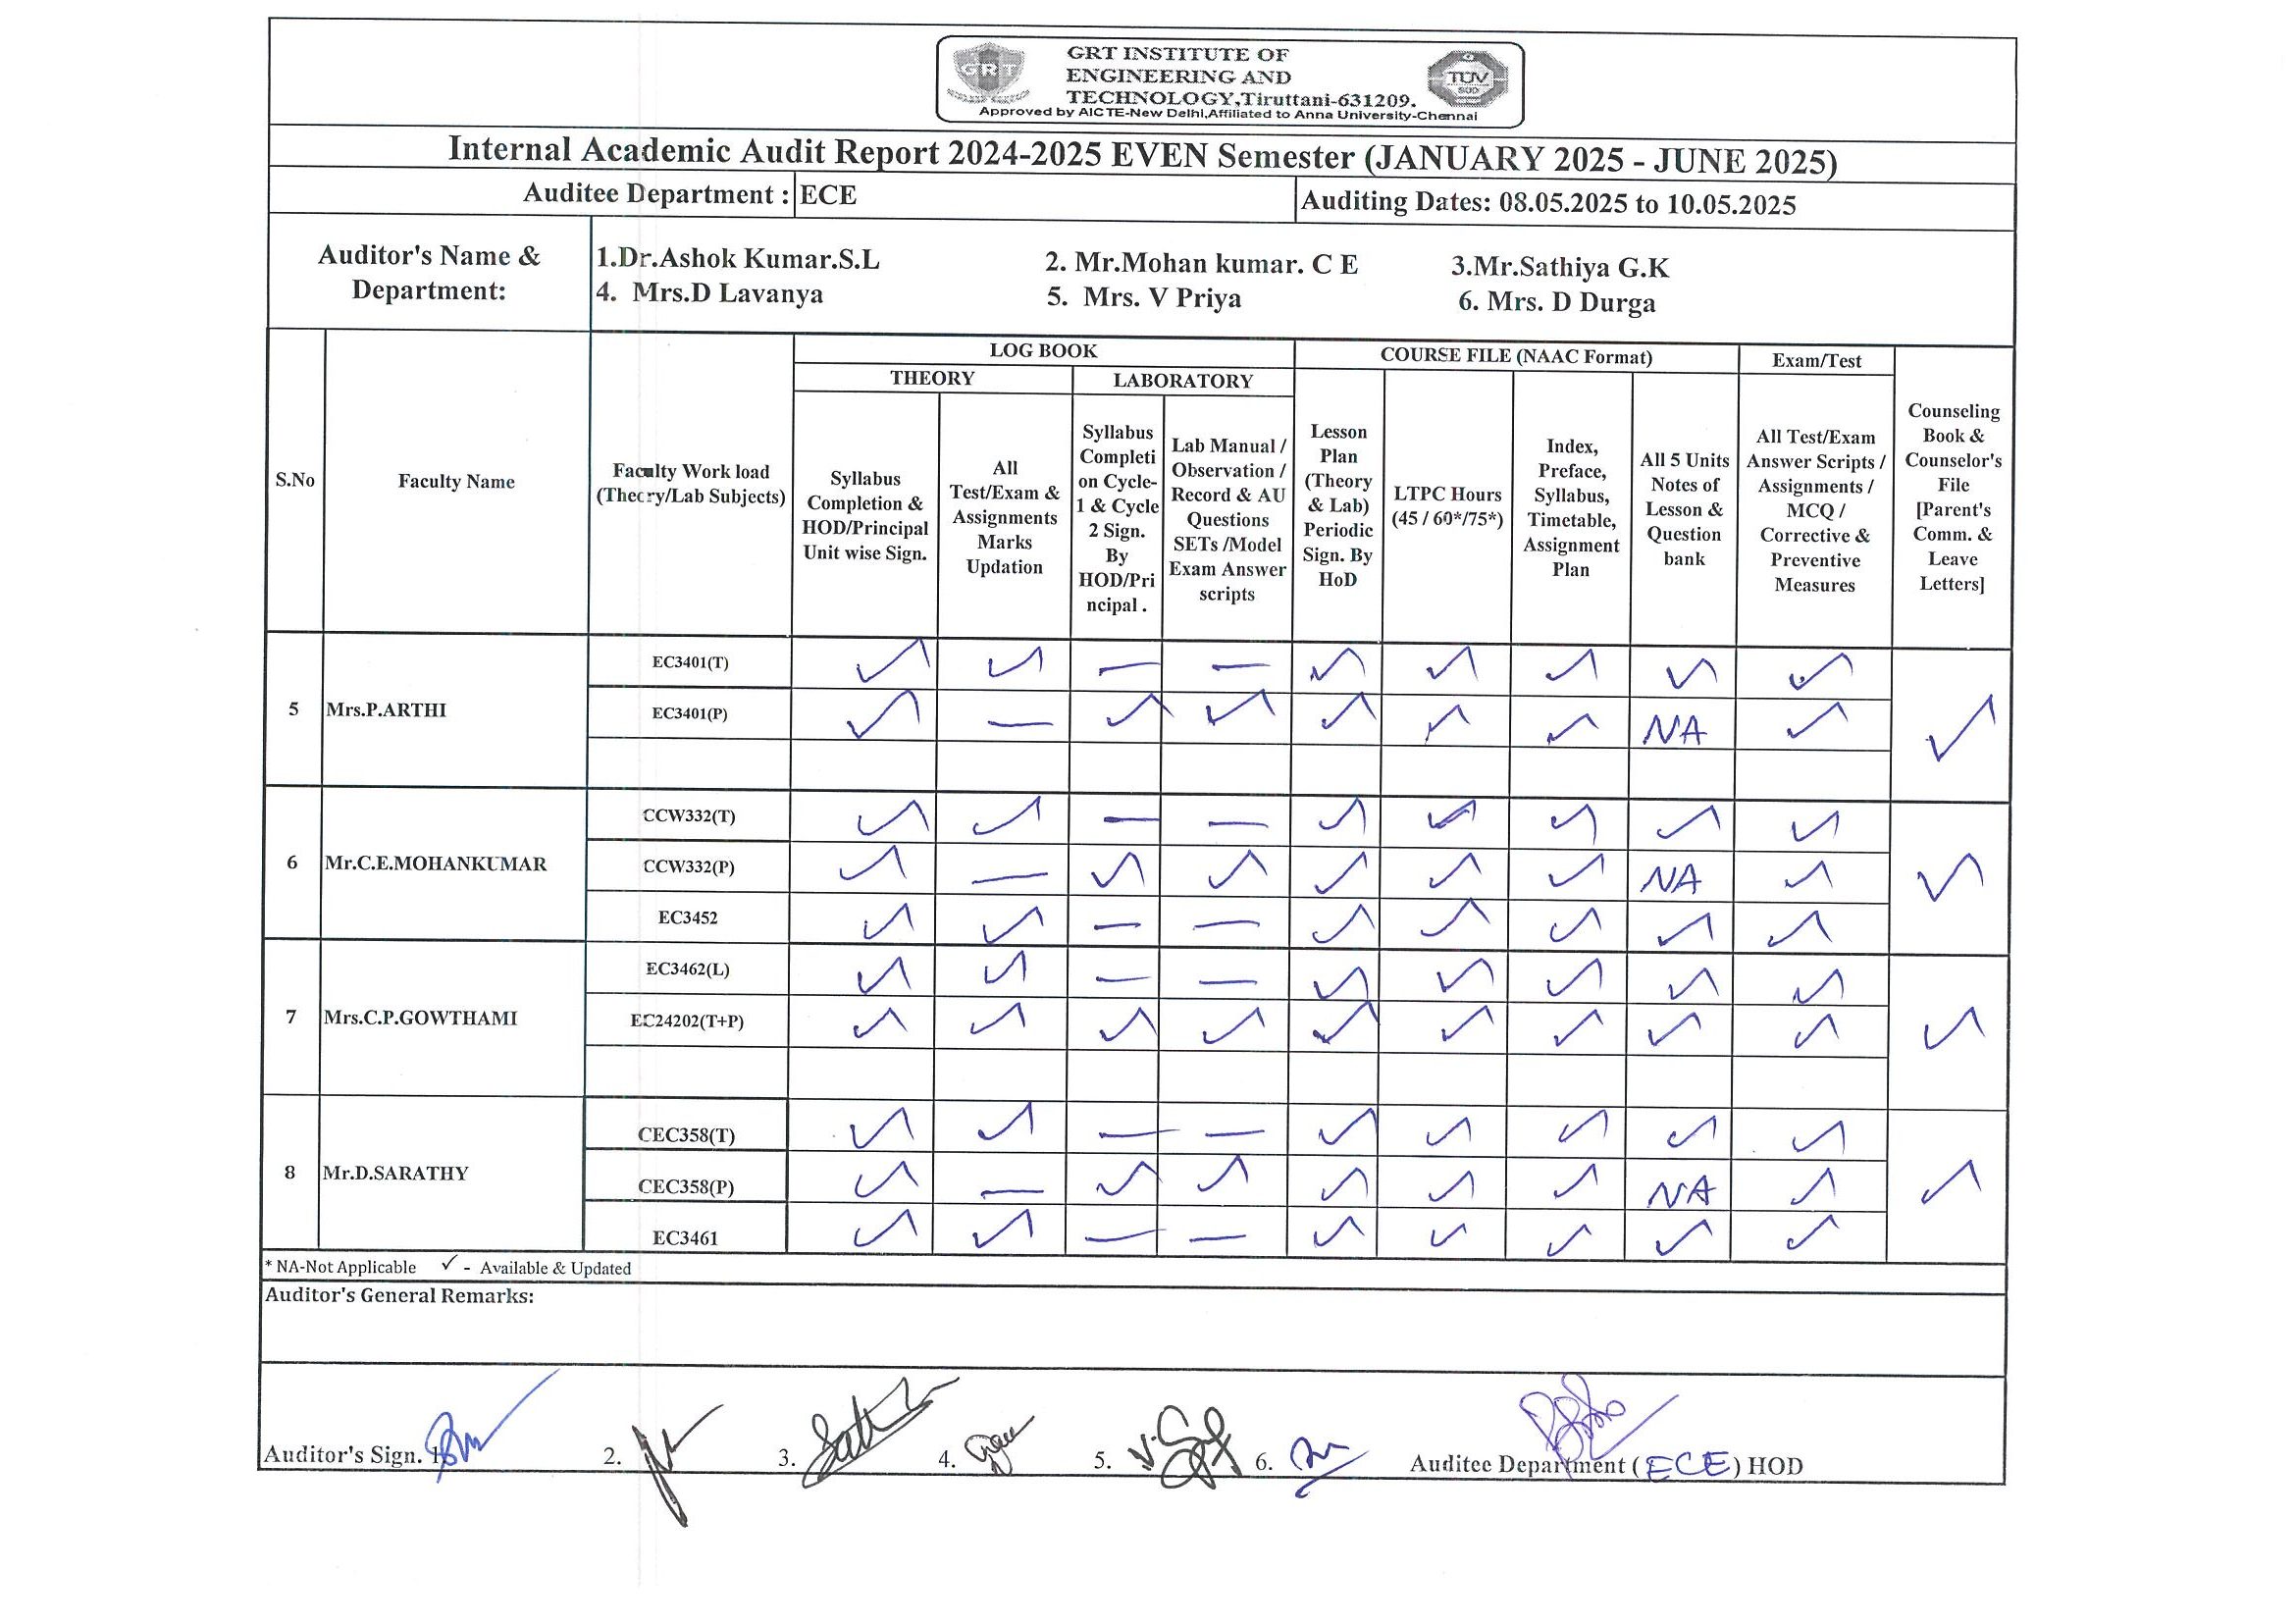 GRT INSTITUTE OF
ENGINEERING AND
TECHNOLOGY,Tiruttani-631209.
Approved by AICTE-New Delhi,Affiliated to Anna University-Chennai
GRT
TÜV
SÜD
Internal Academic Audit Report 2024-2025 EVEN Semester (JANUARY 2025 - JUNE 2025)
Auditee Department : ECE Auditing Dates: 08.05.2025 to 10.05.2025
Auditor's Name &
Department:
1.Dr.Ashok Kumar.S.L 2. Mr.Mohan kumar. C E 3.Mr.Sathiya G.K
4. Mrs.D Lavanya 5. Mrs. V Priya 6. Mrs. D Durga
S.No
Faculty Name
Faculty Work load
(Theory/Lab Subjects)
LOG BOOK
THEORY
Syllabus
Completion &
HOD/Principal
Unit wise Sign.
All
Test/Exam &
Assignments
Marks
Updation
LABORATORY
Syllabus
Completi
on Cycle-
1 & Cycle
2 Sign.
By
HOD/Pri
ncipal .
Lab Manual /
Observation /
Record & AU
Questions
SETs /Model
Exam Answer
scripts
COURSE FILE (NAAC Format)
Lesson
Plan
(Theory
& Lab)
Periodic
Sign. By
HoD
LTPC Hours
(45 / 60*/75*)
Index,
Preface,
Syllabus,
Timetable,
Assignment
Plan
All 5 Units
Notes of
Lesson &
Question
bank
Exam/Test
All Test/Exam
Answer Scripts /
Assignments /
MCQ /
Corrective &
Preventive
Measures
Counseling
Book &
Counselor's
File
[Parent's
Comm. &
Leave
Letters]
5 Mrs.P.ARTHI
EC3401(T) ✓ ✓ — — ✓ ✓ ✓ ✓ ✓ ✓
EC3401(P) ✓ — ✓ ✓ ✓ ✓ ✓ NA ✓
6 Mr.C.E.MOHANKUMAR
CCW332(T) ✓ ✓ — — ✓ ✓ ✓ ✓ ✓ ✓
CCW332(P) ✓ — ✓ ✓ ✓ ✓ ✓ NA ✓
EC3452 ✓ ✓ — — ✓ ✓ ✓ ✓ ✓
7 Mrs.C.P.GOWTHAMI
EC3462(L) ✓ ✓ — — ✓ ✓ ✓ ✓ ✓ ✓
EC24202(T+P) ✓ ✓ ✓ ✓ ✓ ✓ ✓ ✓ ✓
8 Mr.D.SARATHY
CEC358(T) ✓ ✓ — — ✓ ✓ ✓ ✓ ✓ ✓
CEC358(P) ✓ — ✓ ✓ ✓ ✓ ✓ NA ✓
EC3461 ✓ ✓ — — ✓ ✓ ✓ ✓ ✓
* NA-Not Applicable ✓ - Available & Updated
Auditor's General Remarks:
Auditor's Sign. 1. 2. 3. 4. 5. 6. Auditee Department (ECE) HOD